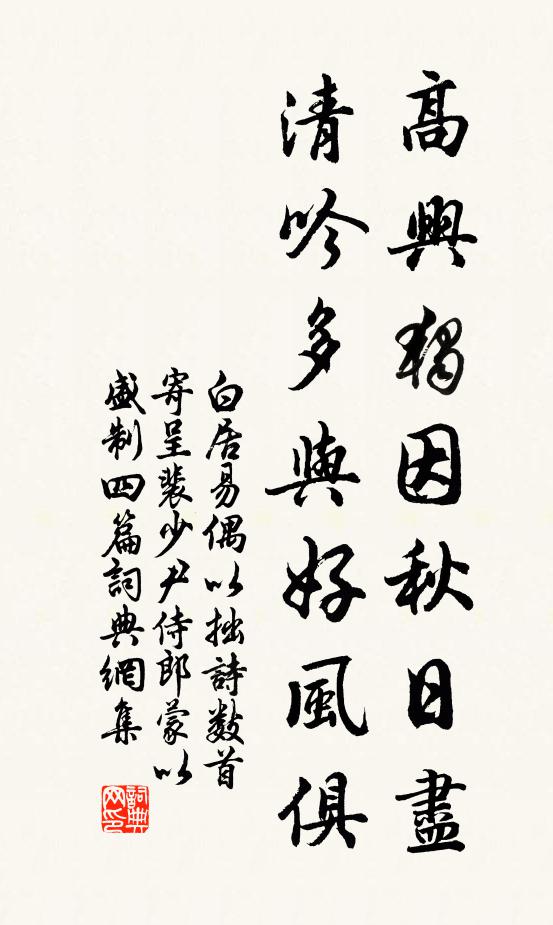 高興獨因秋日盡
清吟多與好風俱
白居易偶以拙詩數首
寄呈裴少尹侍郎蒙以
盛制四篇詞典網集
詞典网印